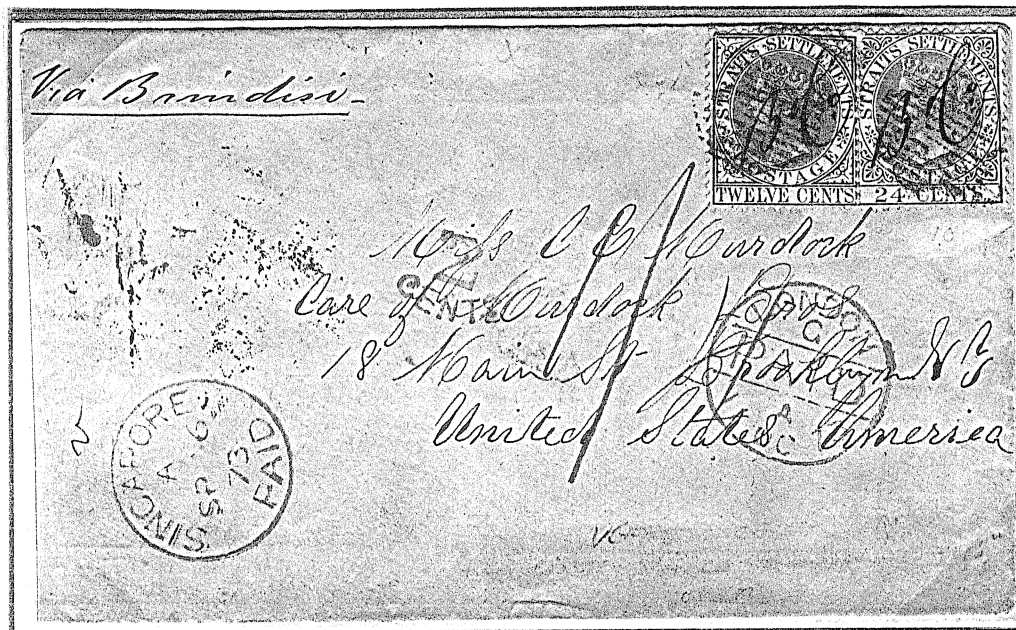 Via Brindisi
STRAITS SETTLEMENTS
POSTAGE
TWELVE CENTS
STRAITS SETTLEMENTS
POSTAGE
24 CENTS
Miss C C Murdock
Care of Murdock
CENTS
18 Main St Brooklyn NY
United States America
LONDON
PAID
SINGAPORE
A
SP 6
73
PAID